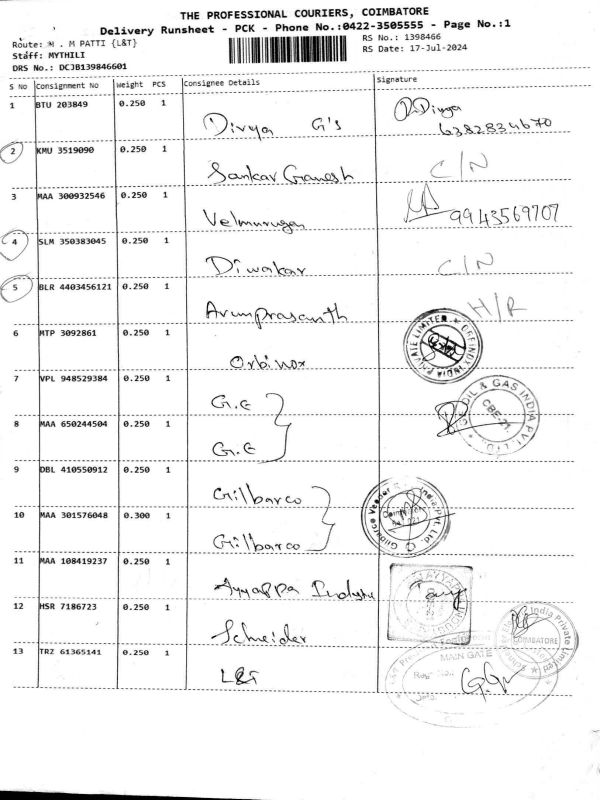 THE PROFESSIONAL COURIERS, COIMBATORE
Delivery Runsheet - PCK - Phone No.:0422-3505555 - Page No.:1
Route: M . M PATTI {L&T}
RS No.: 1398466
Staff: MYTHILI
RS Date: 17-Jul-2024
DRS No.: DCJB139846601
S No Consignment No Weight PCS Consignee Details Signature
1 BTU 203849 0.250 1 Divya G's Divya 6382834670
2 KMU 3519090 0.250 1 Sankar Ganesh C/N
3 MAA 300932546 0.250 1 Velmurugan 9943569707
4 SLM 350383045 0.250 1 Diwakar C/N
5 BLR 4403456121 0.250 1 Arunprasanth H/R
6 MTP 3092861 0.250 1 Orbinox
ORBINOX INDIA PRIVATE LIMITED
7 VPL 948529384 0.250 1 G.E
OIL & GAS INDIA PVT. LTD. CBE-21.
8 MAA 650244504 0.250 1 G.E
9 DBL 410550912 0.250 1 Gilbarco
Gilbarco Veeder India Pvt. Ltd.
10 MAA 301576048 0.300 1 Gilbarco
11 MAA 108419237 0.250 1 Ayyappa
12 HSR 7186723 0.250 1 Schneider
India Private Limited COIMBATORE
13 TRZ 61365141 0.250 1 L&T
MAIN GATE